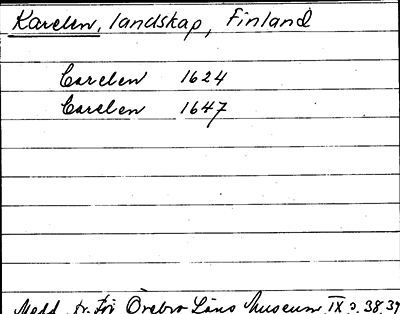 Karelen, landskap, Finland
Carelen 1624
Carelen 1647
Medd. fr. För Örebro Läns Museum IX s. 38, 39